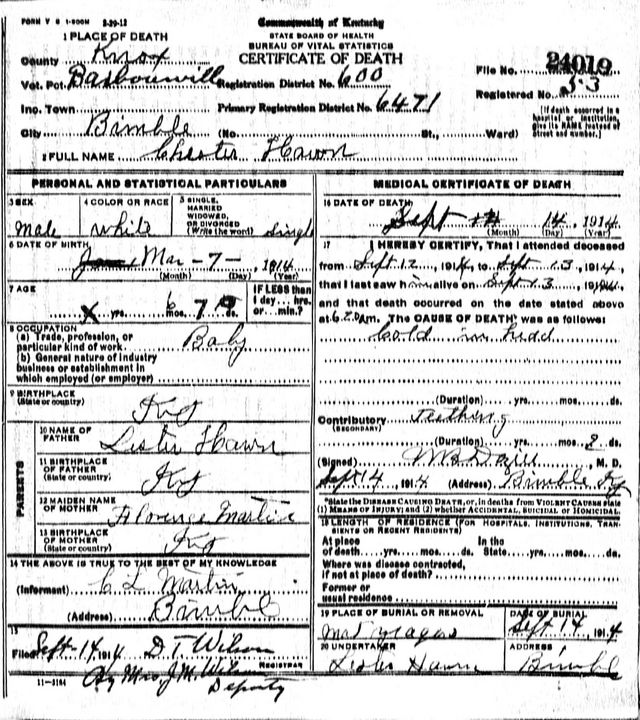 FORM V S 1-500M 3-29-12
Commonwealth of Kentucky
STATE BOARD OF HEALTH
BUREAU OF VITAL STATISTICS
CERTIFICATE OF DEATH
1 PLACE OF DEATH
County Knox
Vot. Pct. Barbourvill Registration District No. 600
File No. 24019
Registered No. 53
Inc. Town Primary Registration District No. 6471
City Bimble (No. St., Ward)
[If death occurred in a hospital or institution, give its NAME instead of street and number.]
2 FULL NAME Chester Hawn
PERSONAL AND STATISTICAL PARTICULARS
3 SEX
Male
4 COLOR OR RACE
White
5 SINGLE, MARRIED WIDOWED, OR DIVORCED (Write the word) Single
6 DATE OF BIRTH
Mar - 7 - , 1914
(Month) (Day) (Year)
7 AGE
x yrs. 6 mos. 7 ds.
IF LESS than 1 day... hrs. or... min.?
8 OCCUPATION
(a) Trade, profession, or particular kind of work Baby
(b) General nature of industry business or establishment in which employed (or employer)
9 BIRTHPLACE
(State or country) Ky
PARENTS
10 NAME OF FATHER Lester Hawn
11 BIRTHPLACE OF FATHER
(State or country) Ky
12 MAIDEN NAME OF MOTHER Florence Martin
13 BIRTHPLACE OF MOTHER
(State or country) Ky
14 THE ABOVE IS TRUE TO THE BEST OF MY KNOWLEDGE
(Informant) C L Martin
(Address) Bimble
15
Filed Sept-14, 1914 D. T. Wilson
REGISTRAR
By Mrs. J. M. Wilson
Deputy
11-3184
MEDICAL CERTIFICATE OF DEATH
16 DATE OF DEATH
Sept 14, 1914
(Month) (Day) (Year)
17 I HEREBY CERTIFY, That I attended deceased
from Sept 12, 1914, to Sept 13, 1914,
that I last saw him alive on Sept 13, 1914,
and that death occurred on the date stated above
at 6 m. The CAUSE OF DEATH* was as follows:
Cold in head
(Duration) yrs. mos. ds.
Contributory Teething
(SECONDARY)
(Duration) yrs. mos. 2 ds.
(Signed) M. D.
Sept 14, 1914 (Address) Bimble Ky
*State the DISEASE CAUSING DEATH, or, in deaths from VIOLENT CAUSES state (1) MEANS OF INJURY; and (2) whether ACCIDENTAL, SUICIDAL OR HOMICIDAL.
18 LENGTH OF RESIDENCE (FOR HOSPITALS, INSTITUTIONS, TRANSIENTS OR RECENT RESIDENTS)
At place of death yrs. mos. ds. In the State yrs. mos. ds.
Where was disease contracted, if not at place of death?
Former or usual residence
19 PLACE OF BURIAL OR REMOVAL
DATE OF BURIAL
Sept 14, 1914
20 UNDERTAKER
Lester Hawn
ADDRESS
Bimble